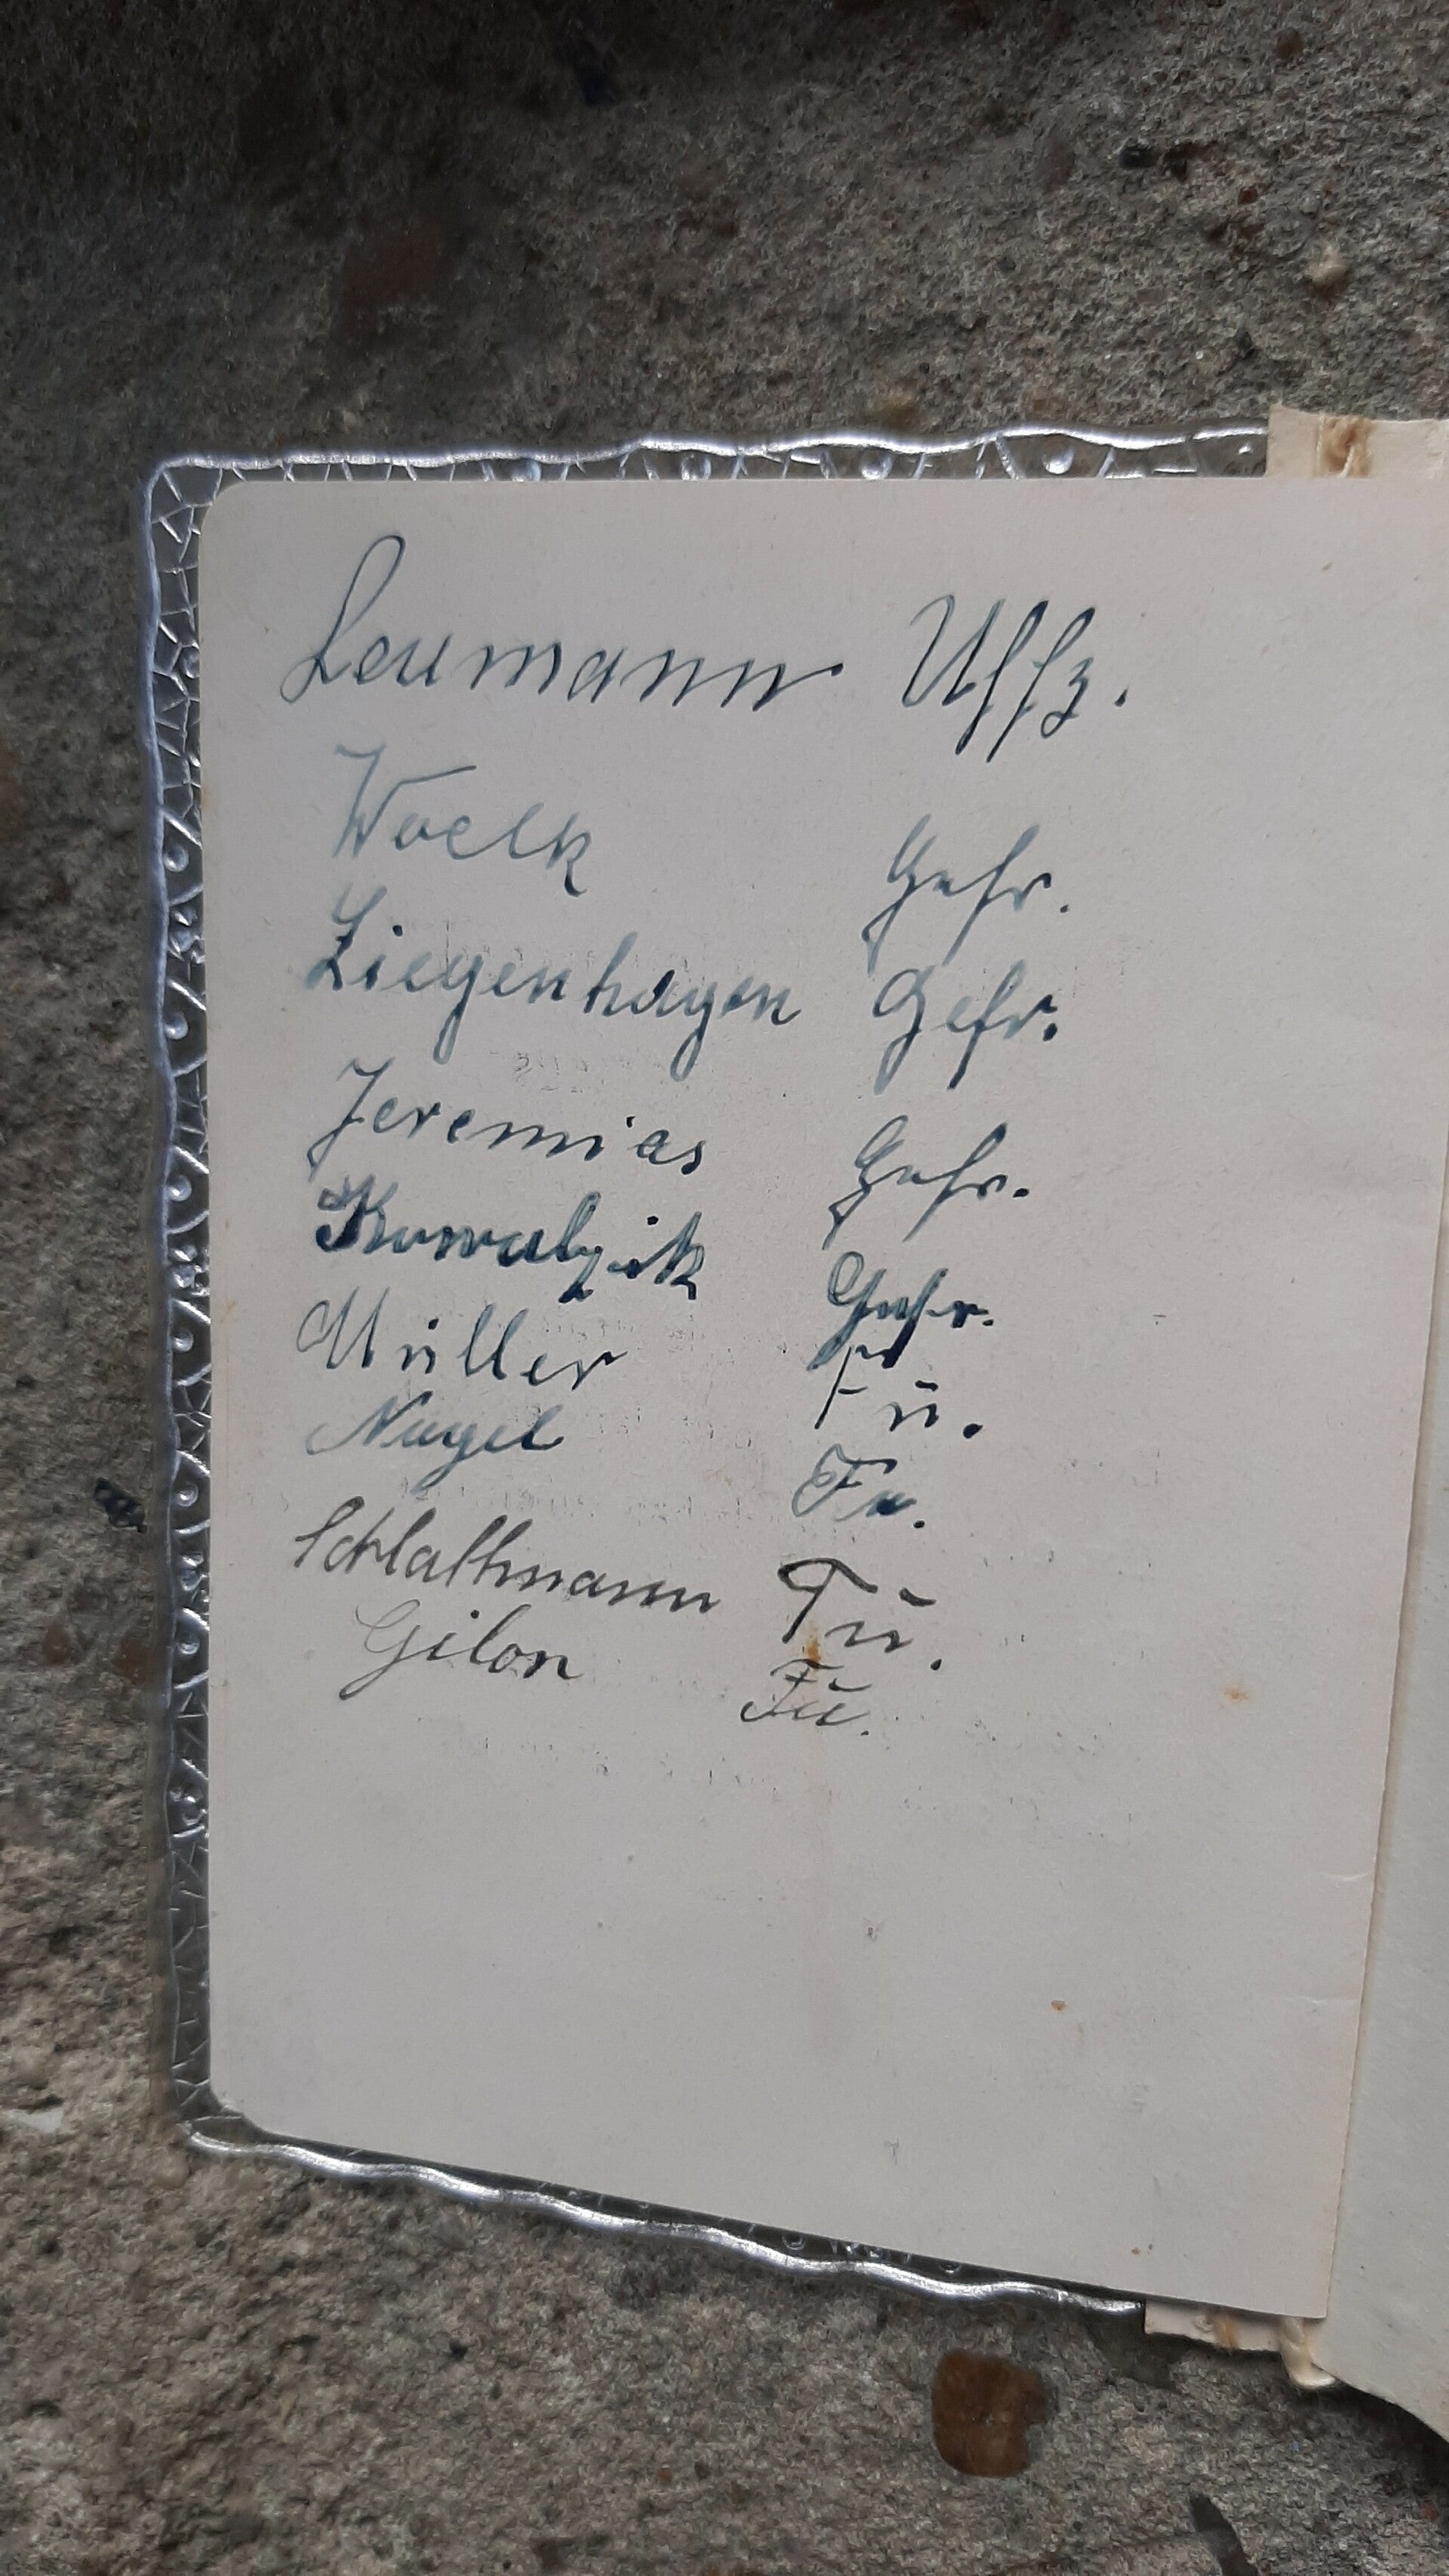 Leumann Uffz.
Woelk Gefr.
Ziegenhagen Gefr.
Jeremias Gefr.
Kowalzik Gefr.
Müller Fü.
Nagel Fü.
Schlattmann Fü.
Gilon Fü.